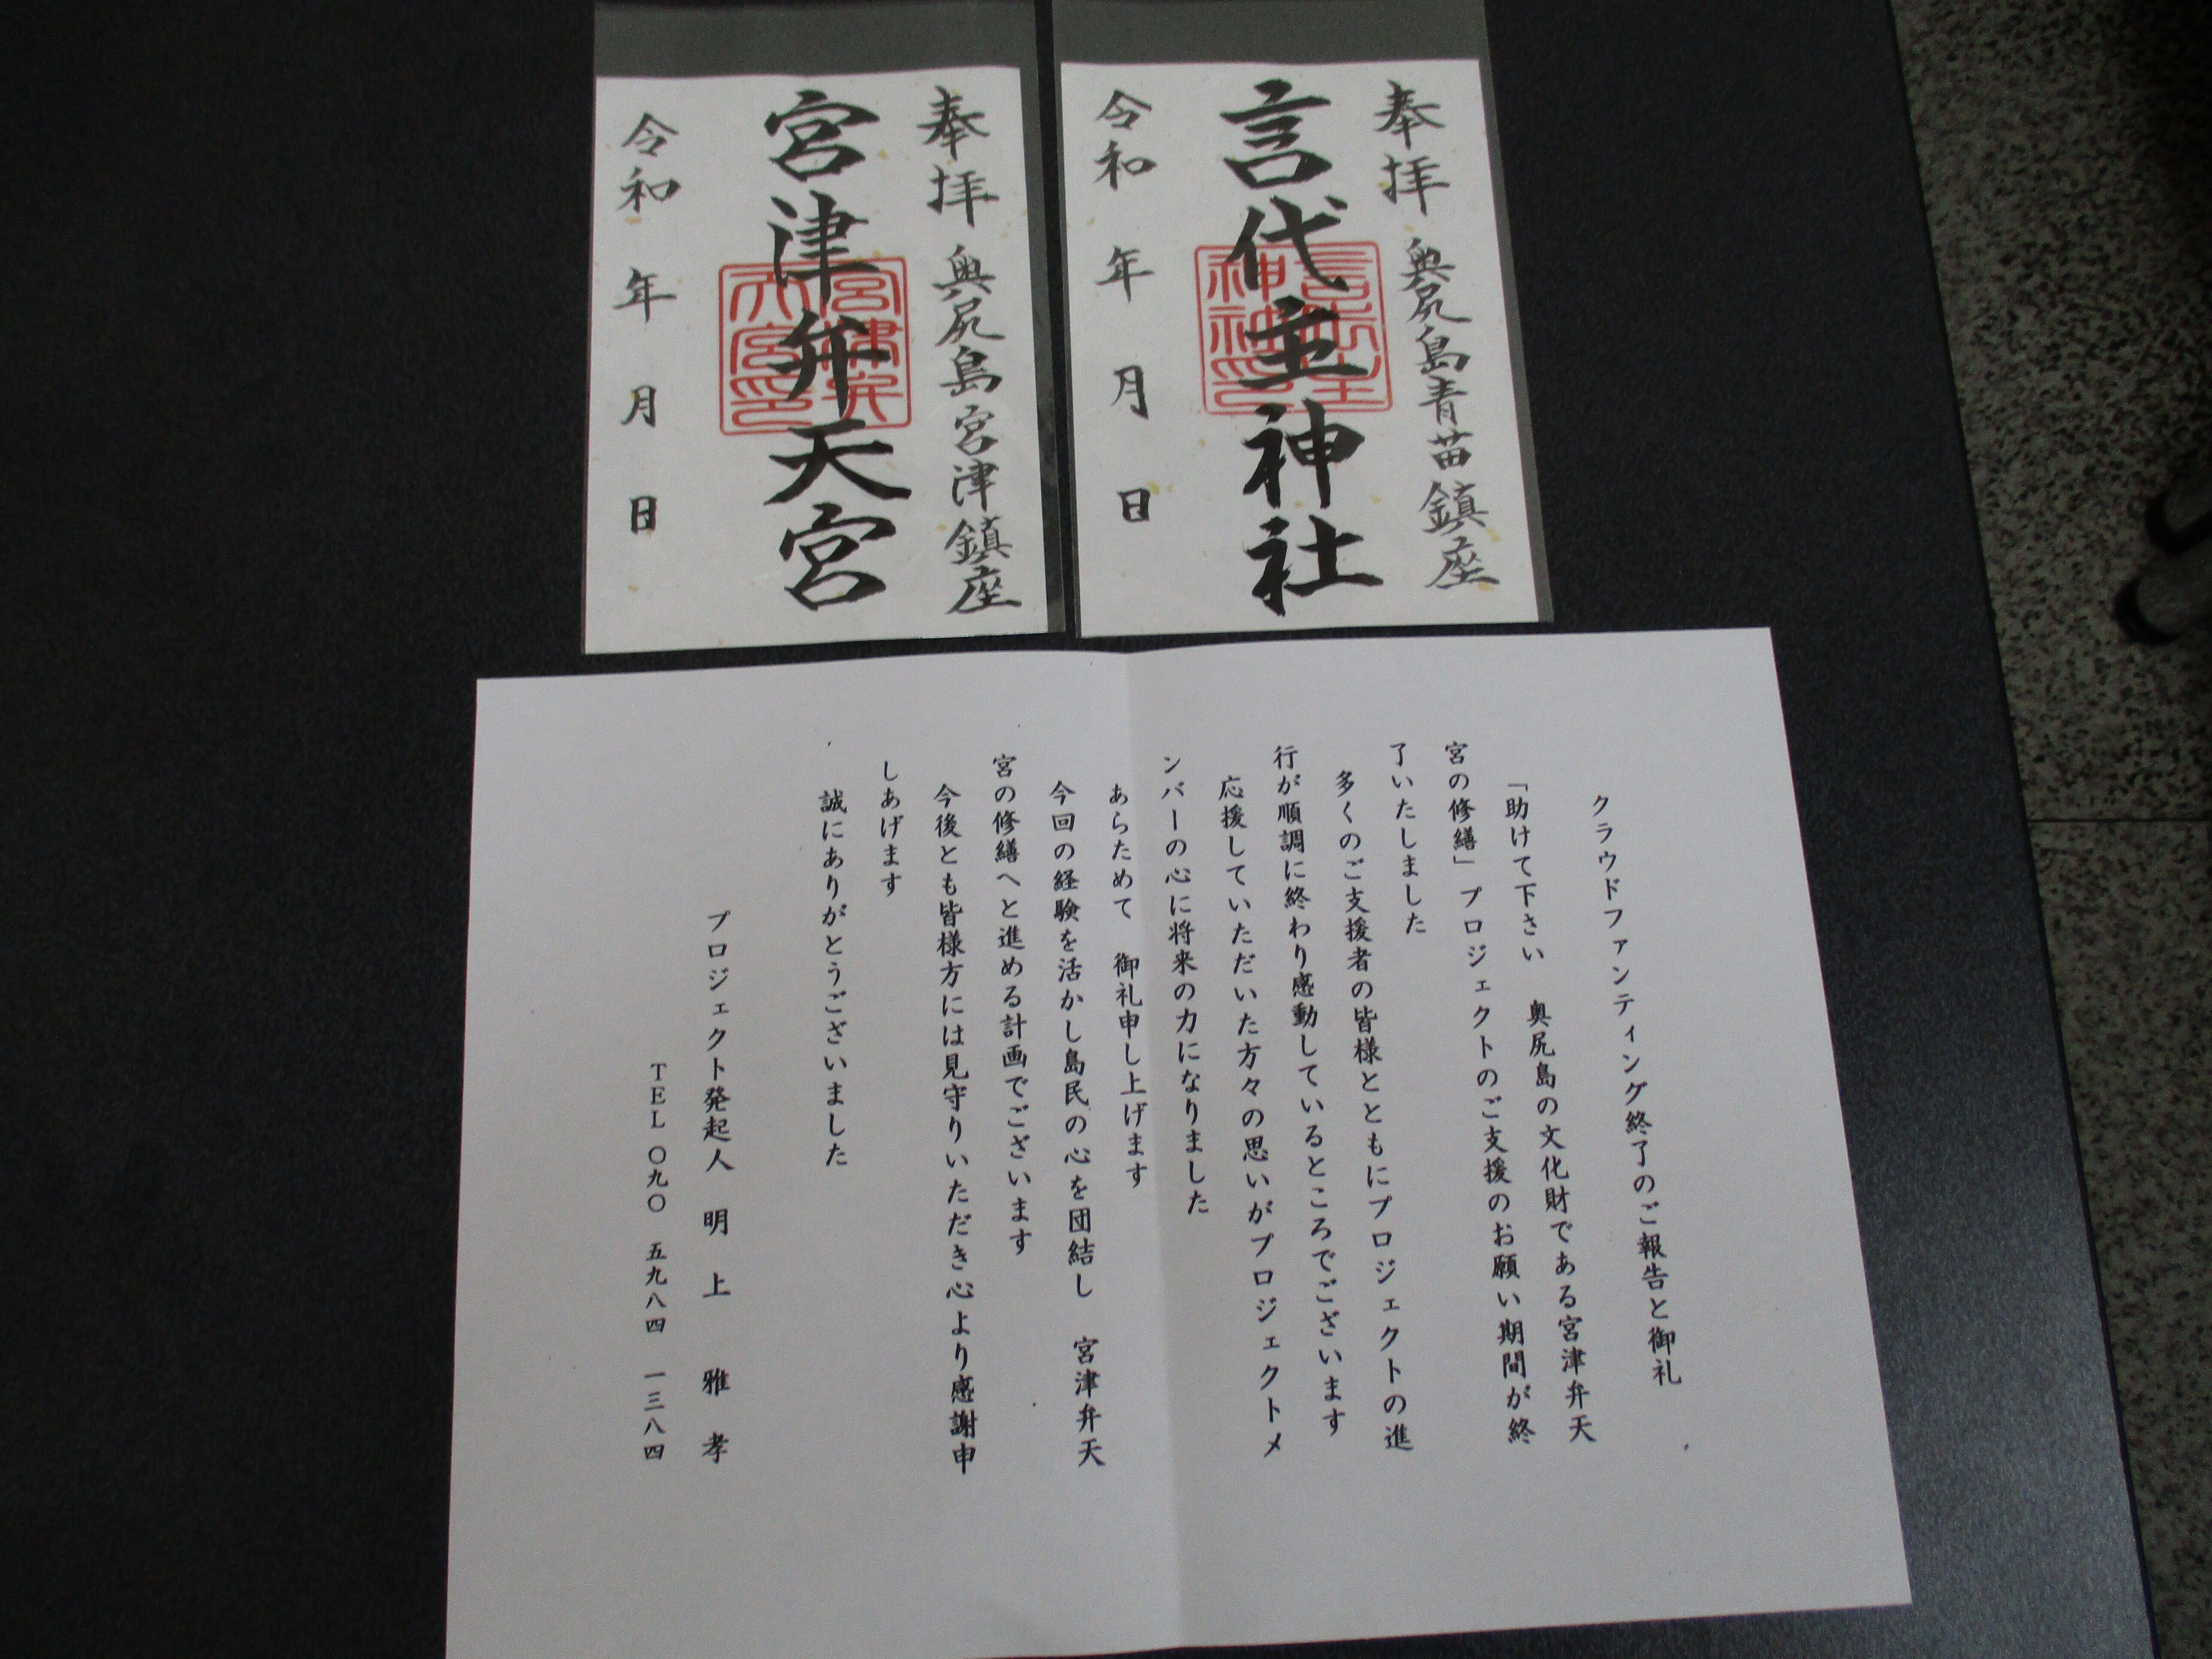 奉拝 奥尻島青苗鎮座
言代主神社
令和 年 月 日
奉拝 奥尻島宮津鎮座
宮津弁天宮
令和 年 月 日
クラウドファンティング終了のご報告と御礼
「助けて下さい 奥尻島の文化財である宮津弁天
宮の修繕」プロジェクトのご支援のお願い期間が終
了いたしました
多くのご支援者の皆様とともにプロジェクトの進
行が順調に終わり感動しているところでございます
応援していただいた方々の思いがプロジェクトメ
ンバーの心に将来の力になりました
あらためて 御礼申し上げます
今回の経験を活かし島民の心を団結し 宮津弁天
宮の修繕へと進める計画でございます
今後とも皆様方には見守りいただき心より感謝申
しあげます
誠にありがとうございました
プロジェクト発起人 明上 雅孝
TEL 〇九〇 五九八四 一三八四